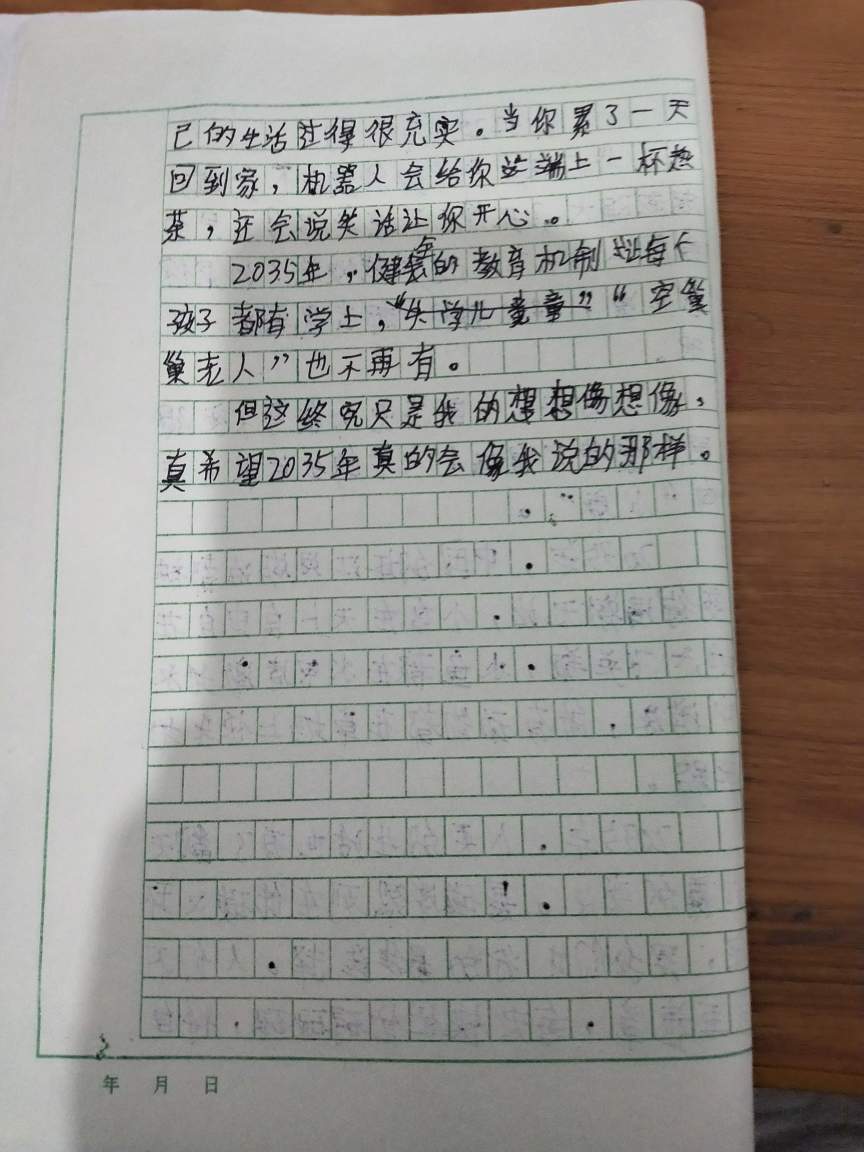 己的生活过得很充实。当你累了一天
回到家，机器人会给你端上一杯热
茶，还会说笑话让你开心。
2035年，健全的教育机制让每个
孩子都有学上，“失学儿童”“空巢
巢老人”也不再有。
但这终究只是我的想想像想像，
真希望2035年真的会像我说的那样。
年 月 日